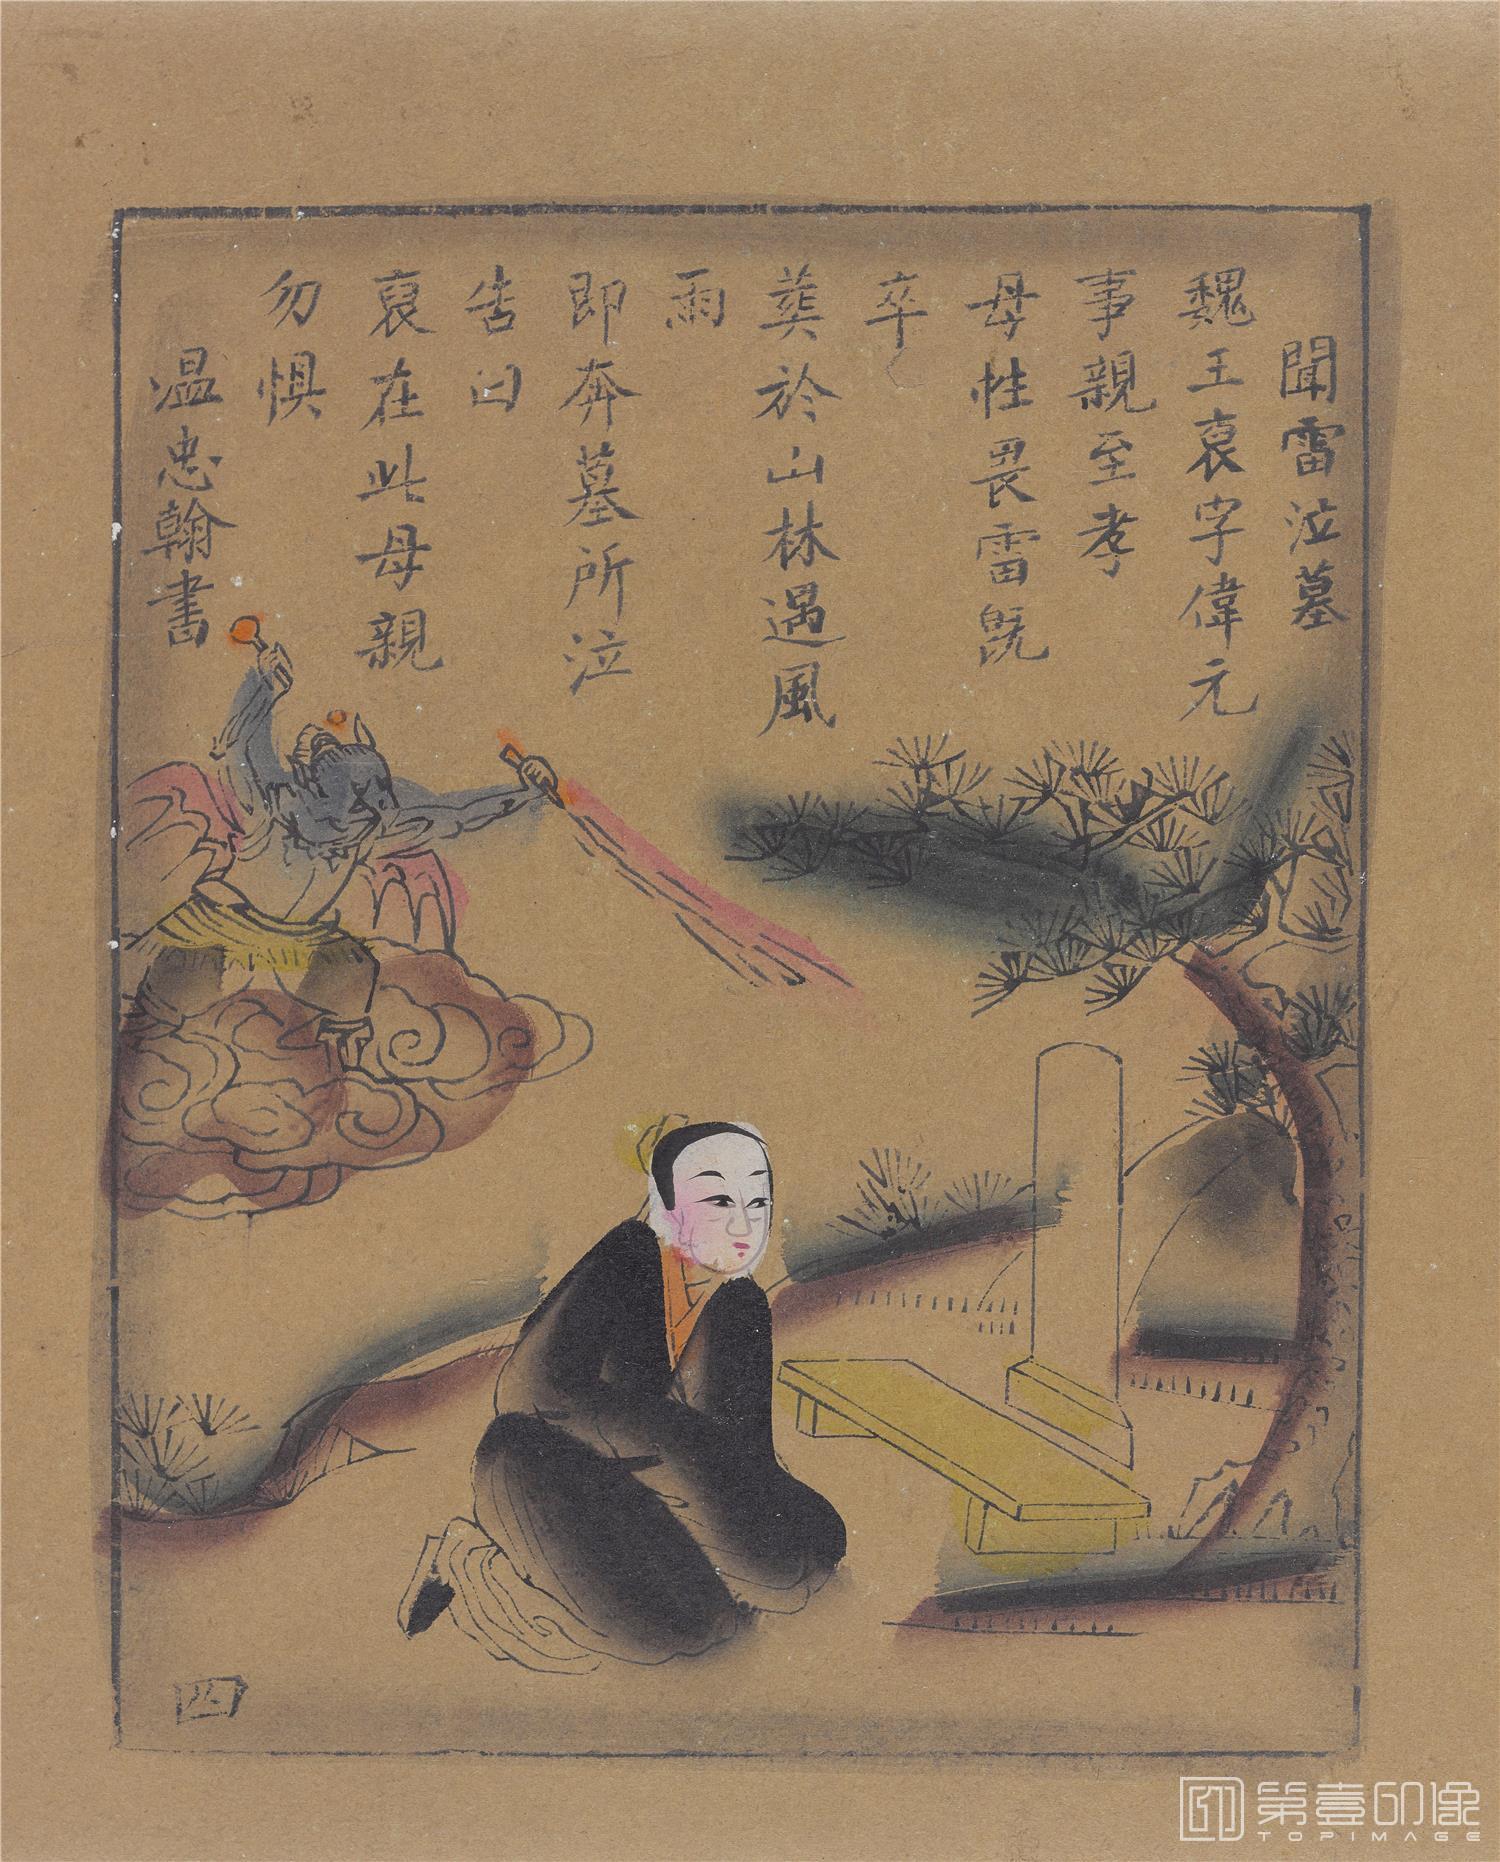 聞雷泣墓
魏王裒字偉元
事親至孝
母性畏雷既
卒
葬於山林遇風
雨
即奔墓所泣
告曰
裒在此母親
勿懼
温忠翰書
四
第壹印像
TOPIMAGE